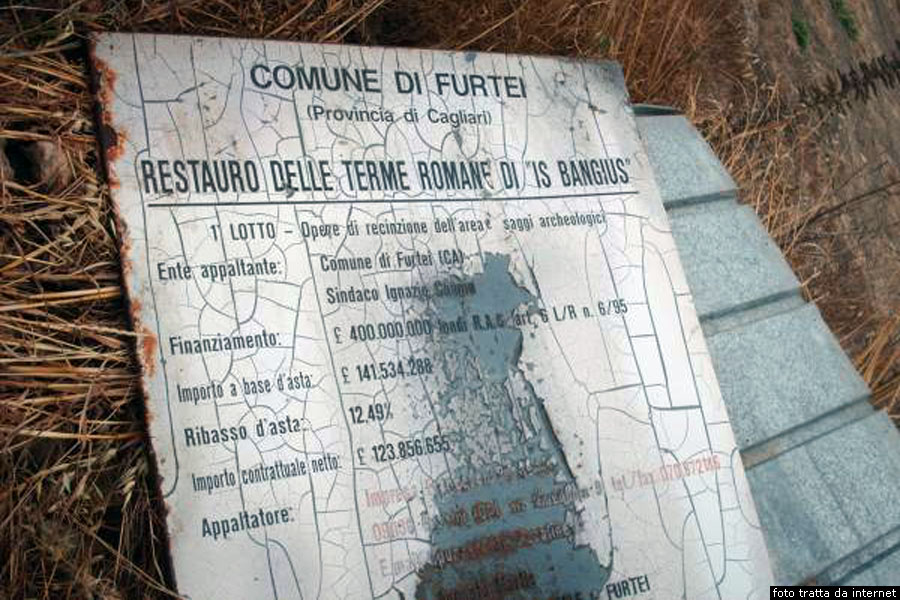 COMUNE DI FURTEI
(Provincia di Cagliari)
RESTAURO DELLE TERME ROMANE DI "IS BANGIUS"
1° LOTTO - Opere di recinzione dell'area e saggi archeologici
Ente appaltante: Comune di Furtei (CA)
Sindaco Ignazio
Finanziamento: £ 400.000.000 fondi R.A.S. art. 6 L/R n. 6/95
Importo a base d'asta: £ 141.534.288
Ribasso d'asta: 12,49%
Importo contrattuale netto: £ 123.856.655
Appaltatore: Impresa
tel/fax
FURTEI
foto tratta da internet